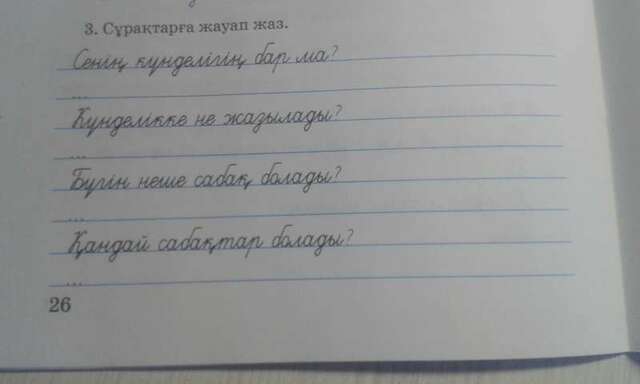 3. Сұрақтарға жауап жаз.
Сенің күнделігің бар ма?
...
Күнделікке не жазылады?
...
Бүгін неше сабақ болады?
...
Қандай сабақтар болады?
...
26